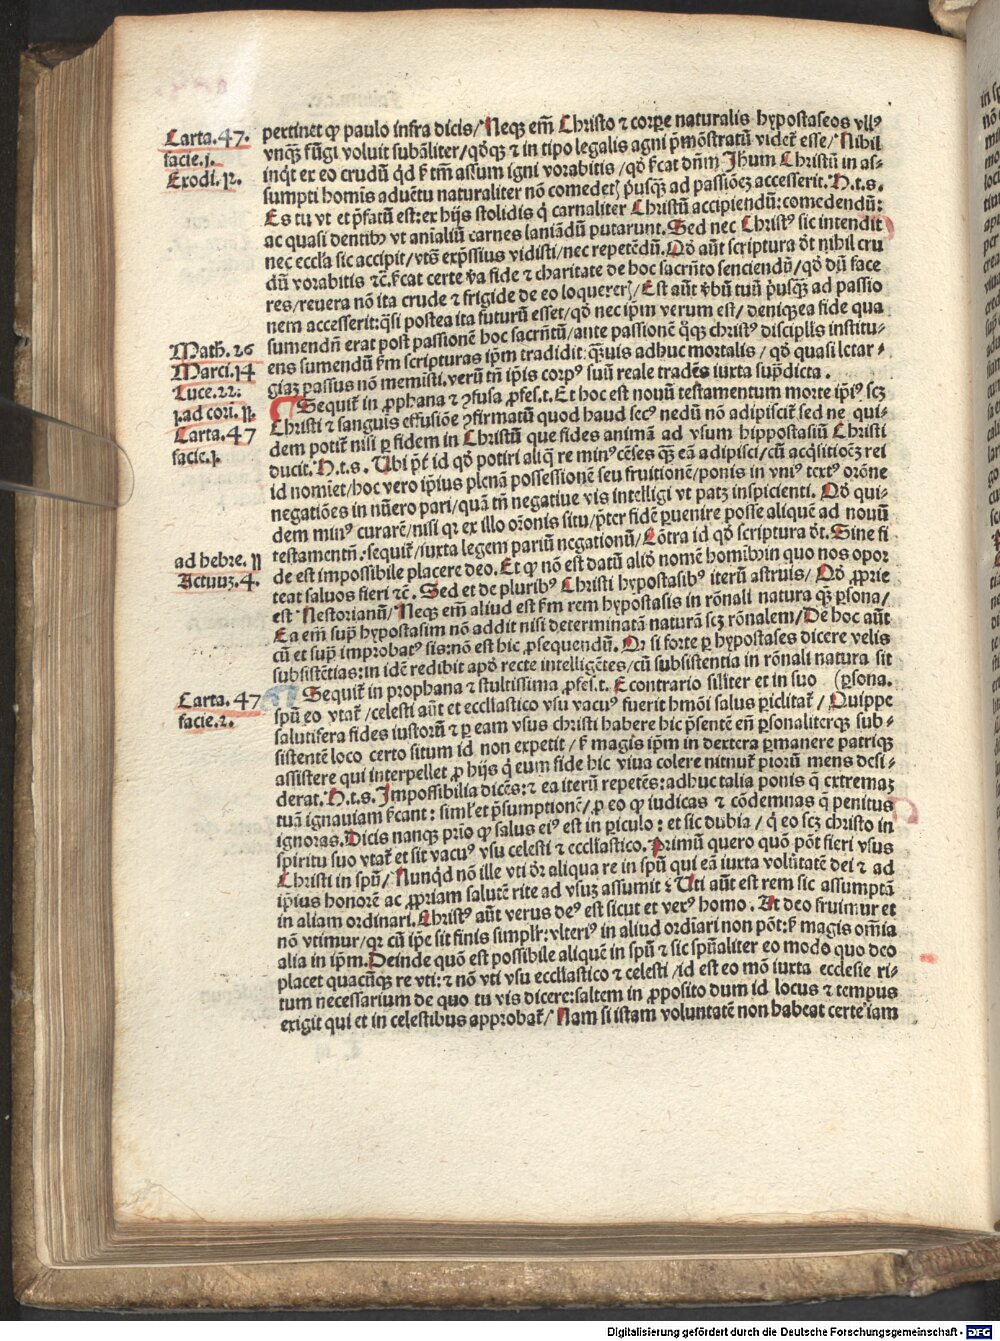 Carta.47.
facie.j.
Exodi.12.
Math̄.26
Marci.14
Luce.22.
1.ad cori.11.
Carta.47
facie.j.
ad hebre.11
Actuuꝫ.4.
Carta.47
facie.2.
pertinet ꝙ paulo infra dicis/Neqꝫ em̄ Christo ⁊ corꝑe naturalis hypostaseos vllꝰ
vnqꝫ̄ fūgi voluit subāliter/qd̓qꝫ ⁊ in tipo legalis agni p̄mōstratū videt̄ esse/Nihil
inqt ex eo crudū qd ẜm tm̄ assum igni vorabitis/qd̓ ẜcat dn̄m Jhūm Christū in as-
sumpti homīs aduētu naturaliter nō comedet p̓usqꝫ̄ ad passiōeꝫ accesserit.N.t.s.
Es tu vt et p̄fatū est:ex hijs stolidis q̓ carnaliter Christū accipiendū:comedendū:
ac quasi dentibꝰ vt aīaliū carnes laniādū putarunt.Sed nec Christꝰ sic intendit
nec eccl̄a sic accipit/vtꝫ exp̄ssius vidisti/nec repetēdū.Qd̓ aūt scriptura dt̄ nihil cru
dū vorabitis ⁊c̄.ẜcat certe v̓a fide ⁊ charitate de hoc sacrm̄to senciendū/qd̓ dū face
res/reuera nō ita crude ⁊ frigide de eo loquerer/Est aūt v̓bū tuū p̓usqꝫ̄ ad passio
nem accesserit:q̓si postea ita futurū esset/qd̓ nec ip̄m verum est/deniqꝫ ea fide qua
sumendū erat post passionē hoc sacrm̄tū/ante passionē q̓qꝫ christꝰ discipl̄is institu-
ens sumendū ẜm scripturas ip̄m tradidit:qꝫ̄uis adhuc mortalis/qd̓ quasi letar-
giaꝫ passus nō memisti.verū tn̄ ip̄is corpꝰ suū reale tradēs iuxta sup̄dicta.
Sequit̄ in ꝓphana ⁊ ꝯfusa ꝓfes.t. Et hoc est nouū testamentum morte ip̄iꝰ scꝫ
Christi ⁊ sanguis effusiōe ꝯfirmatū quod haud secꝰ nedū nō adipiscit̄ sed ne qui-
dem potit̄ nisi ꝑ fidem in Christū que fides animā ad vsum hippostasiū Christi
ducit.N.t.s. Ubi p̄t id qd̓ potiri aliq̓ re minꝰ cēses qꝫ̄ eā adipisci/cū acq̓sitiōeꝫ rei
id nomīet/hoc vero ip̄ius plenā possessionē seu fruitionē/ponis in vniꝰ textꝰ orōne
negatiōes in nūero pari/quā tn̄ negatiue vis intelligi vt patꝫ inspicienti. Qd̓ qui-
dem minꝰ curarē/nisi qꝛ ex illo orōnis situ/p̄ter fidē ꝑuenire posse aliquē ad nouū
testamentū.sequit̄/iuxta legem pariū negationū/Cōtra id qd̓ scriptura dt̄. Sine fi
de est impossibile placere deo.Et ꝙ nō est datū aliō nomē homībꝰ in quo nos opor
teat saluos fieri ⁊c̄. Sed et de pluribꝰ Christi hypostasibꝰ iterū astruis/Qd̓ ꝓprie
est Nestorianū/Neqꝫ em̄ aliud est ẜm rem hypostasis in rōnali natura qꝫ̄ ꝑsona/
Ea em̄ sup̄ hypostasim nō addit nisi determinatā naturā scꝫ rōnalem/De hoc aūt
cū et sup̄ improbatꝰ sis:nō est hic ꝓsequendū. Qꝛ si forte ꝑ hypostases dicere velis
subsistētias:in idē redibit apd̓ recte intelligētes/cū subsistentia in rōnali natura sit
Sequit̄ in prophana ⁊ stultissima ꝓfes.t. Econtrario siliter et in suo (ꝑsona.
spū eo vtat̄/celesti aūt et eccl̄iastico vsu vacuꝰ fuerit hmōi salus ꝑiclitat̄/Quippe
salutifera fides iustorū ⁊ ꝑ eam vsus christi habere hic p̄sentē en̄ ꝑsonaliterqꝫ sub-
sistentē loco certo situm id non expetit/ẜ magis ip̄m in dextera ꝑmanere patriqꝫ
assistere qui interpellet ꝓ hijs q̓ eum fide hic viua colere nitunt̄ piorū mens desi-
derat.N.t.s.Impossibilia dicēs:⁊ ea iterū repetēs:adhuc talia ponis q̄ extremaꝫ
tuā ignauiam ẜcant:simł̓ et p̄sumptionē/ꝓ eo ꝙ iudicas ⁊ cōdemnas q̄ penitus
ignoras.Dicis nanqꝫ prio ꝙ salus eiꝰ est in ꝑiculo:et sic dubia/q̓ eo scꝫ christo in
spiritu suo vtat̄ et sit vacuꝰ vsu celesti ⁊ eccl̄iastico.Primū quero quō pōt fieri vsus
Christi in spū/Nunqd nō ille vti dr̄ aliqua re in spū qui eā iuxta volūtatē dei ⁊ ad
ip̄ius honorē ac ꝓpriam salutē rite ad vsuꝫ assumit? Uti aūt est rem sic assumptā
in aliam ordinari.Christꝰ aūt verus deꝰ est sicut et verꝰ homo. At deo fruimur et
nō vtimur/qꝛ cū ip̄e sit finis simplr̄:vlteriꝰ in aliud ordīari non pōt:ẜ magis om̄ia
alia in ip̄m.Deinde quō est possibile aliquē in spū ⁊ sic spūaliter eo modo quo deo
placet quacūqꝫ re vti:⁊ nō vti vsu eccl̄iastico ⁊ celesti/id est eo mō iuxta ecclesie ri-
tum necessarium de quo tu vis dicere:saltem in ꝓposito dum id locus ⁊ tempus
exigit qui et in celestibus approbat̄/Nam si istam voluntatē non habeat certe iam
Digitalisierung gefördert durch die Deutsche Forschungsgemeinschaft - DFG